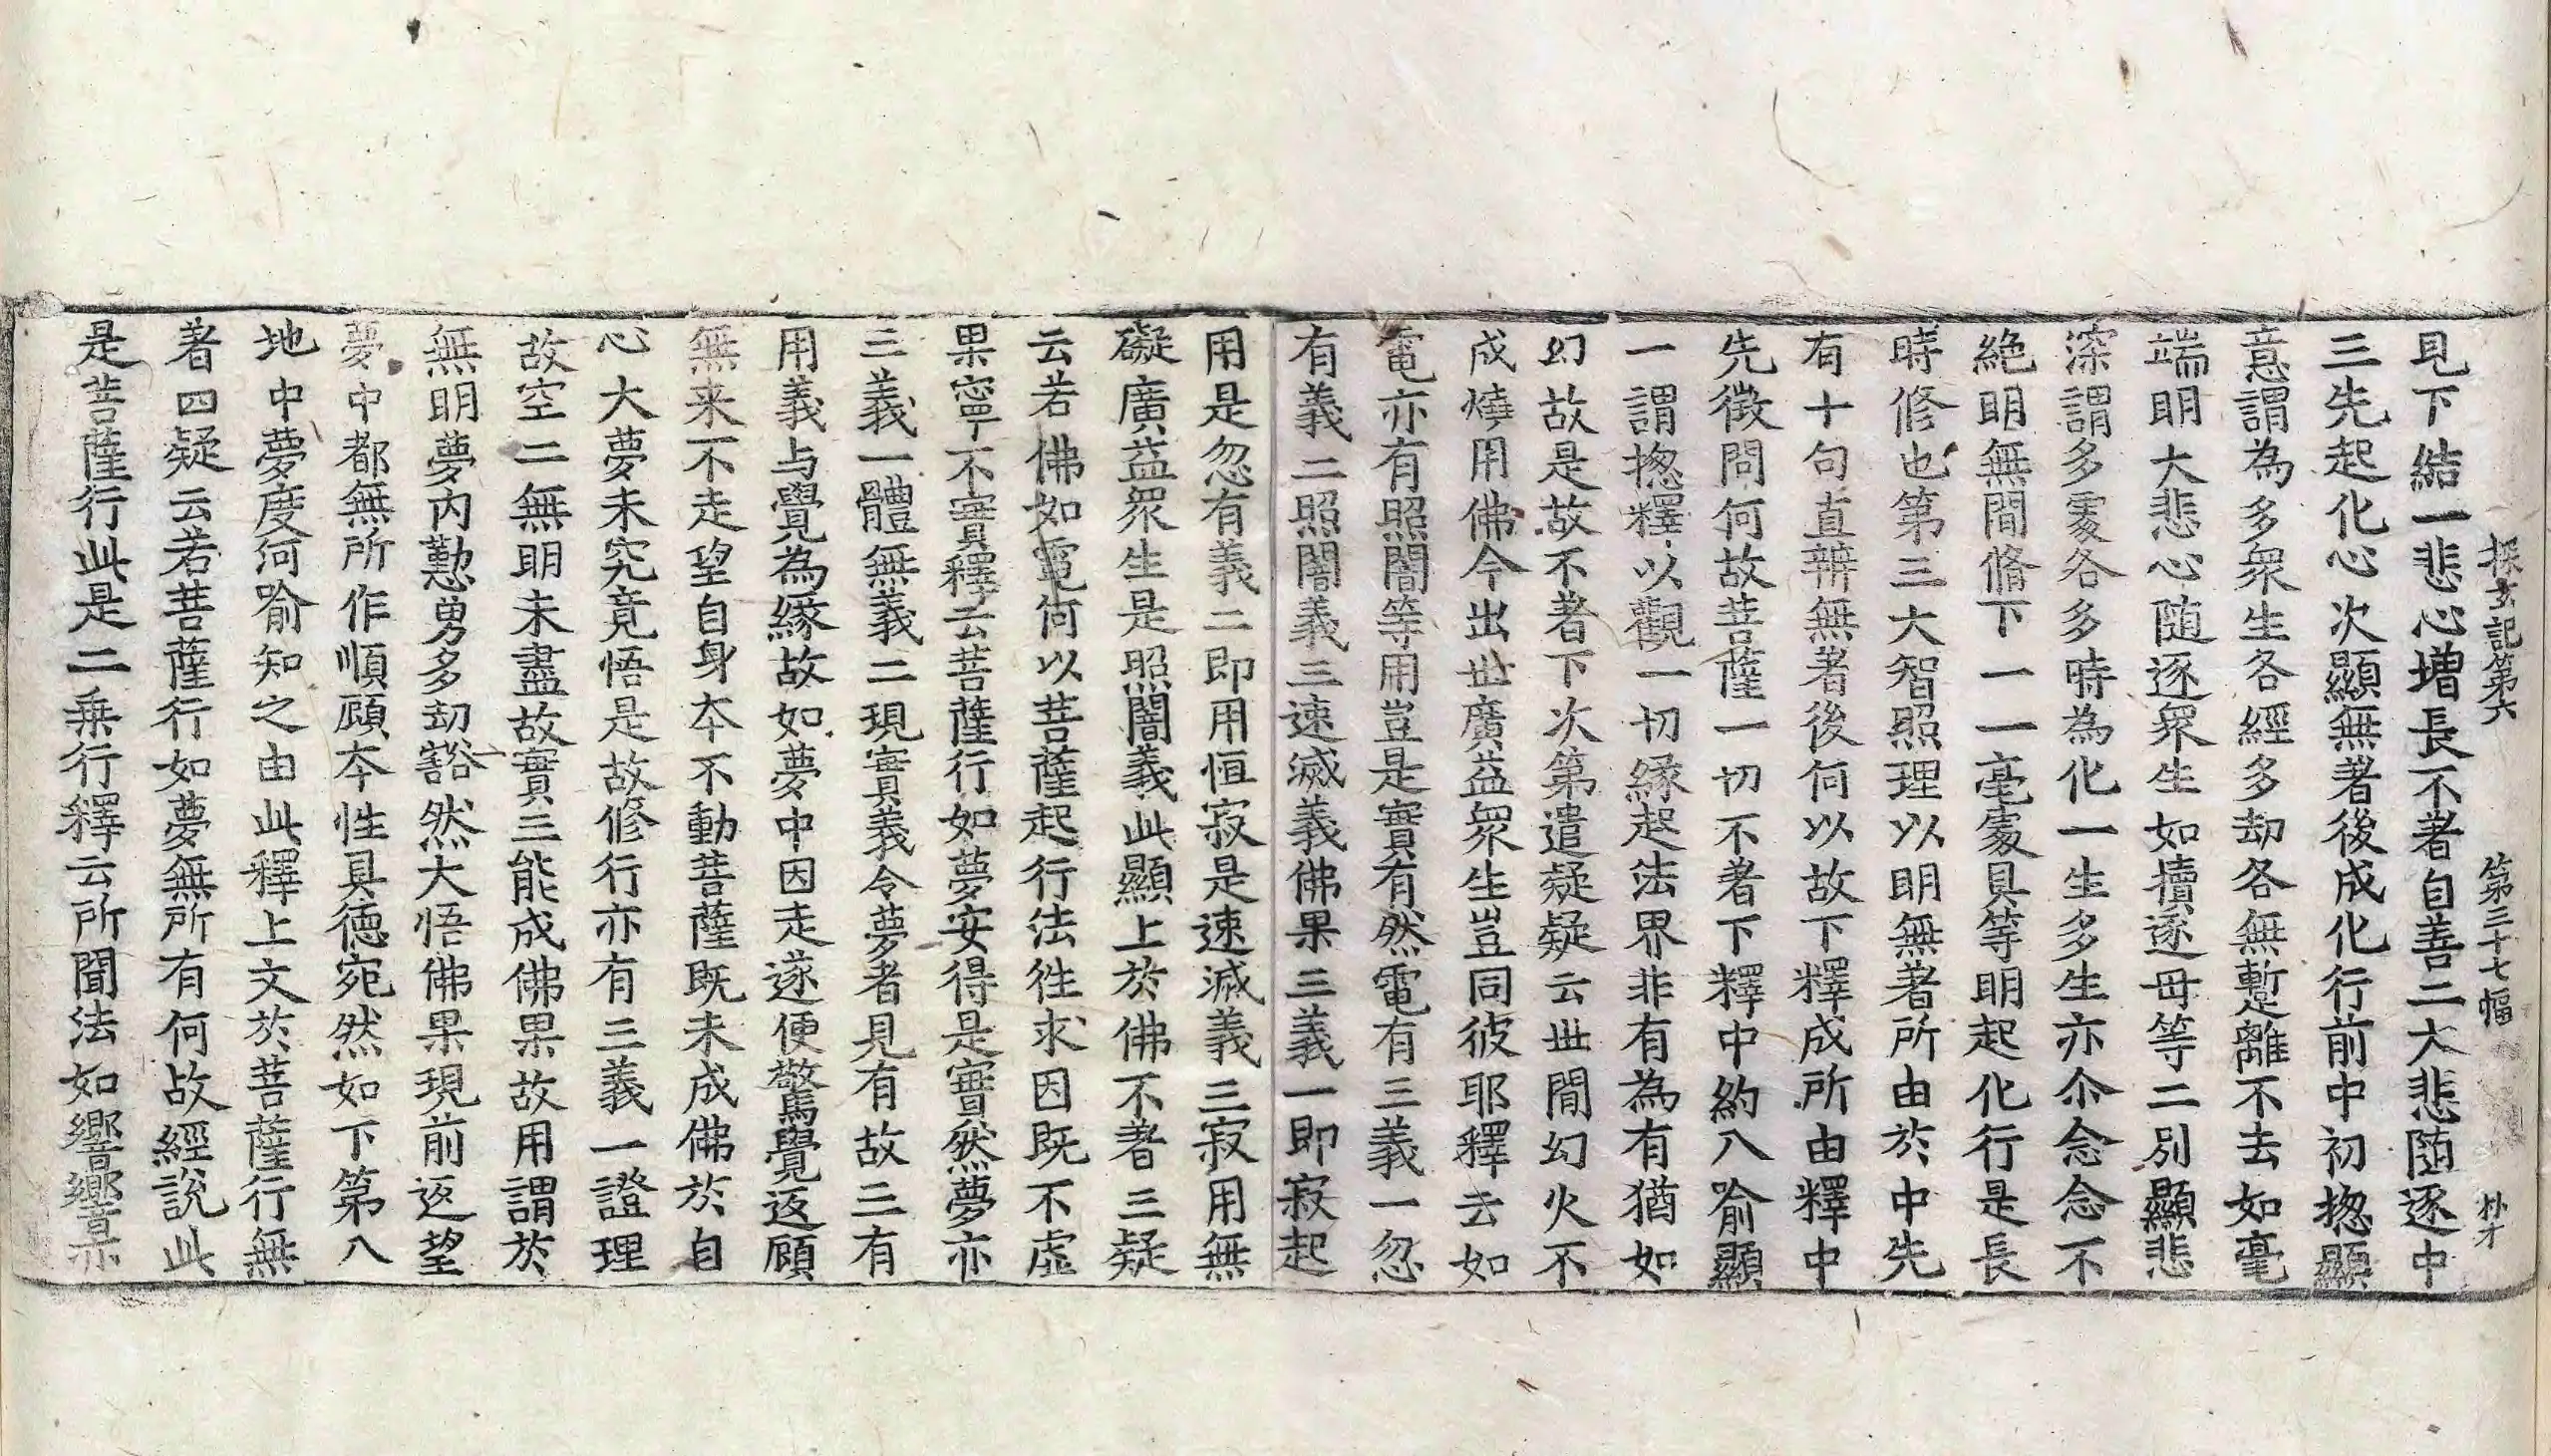 探玄記第六 第三十七幅 朴才
見下結一悲心増長不著自善二大悲随逐中
三先起化心次顯無著後成化行前中初揔顯
意謂為多衆生各經多劫各無蹔離不去如毫
端明大悲心随逐衆生如犢逐母等二別顯悲
深謂多處各多時為化一生多生亦尒念念不
絶明無間脩下一一毫處具等明起化行是長
時修也第三大智照理以明無著所由於中先
有十句直辨無著後何以故下釋成所由釋中
先徴問何故菩薩一切不著下釋中約八喻顯
一謂揔釋以觀一切縁起法界非有為有猶如
幻故是故不著下次第遣疑疑云世間幻火不
成燒用佛今出世廣益衆生豈同彼耶釋云如
電亦有照闇等用豈是實有然電有三義一忽
有義二照闇義三速滅義佛果三義一即寂起
用是忽有義二即用恒寂是速滅義三寂用無
礙廣益衆生是照闇義此顯上於佛不著三疑
云若佛如電何以菩薩起行法徃求因既不虚
果寧不實釋云菩薩行如夢安得是實然夢亦
三義一體無義二現實義令夢者見有故三有
用義与覺為縁故如夢中因走遂便驚覺返顧
無来不走望自身夲不動菩薩既未成佛於自
心大夢未究竟悟是故修行亦有三義一證理
故空二無明未盡故實三能成佛果故用謂於
無明夢内懃勇多劫豁然大悟佛果現前返望
夢中都無所作順顧夲性具德宛然如下第八
地中夢度河喻知之由此釋上文於菩薩行無
著四疑云若菩薩行如夢無所有何故經說此
是菩薩行此是二乗行釋云所聞法如響響亦